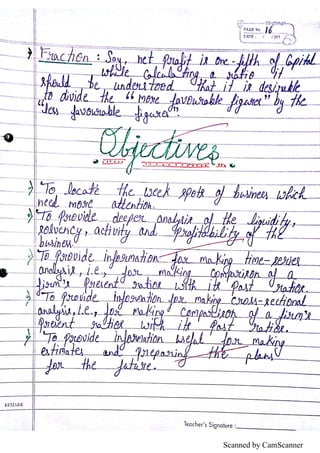 PAGE No. 16
DATE : / /201
→ Fraction : Say, net profit is one-fifth of Capital
while calculating a ratio it
should be understood that it is desirable
to divide the "more favourable figures" by the
"less favourable figure".
Objectives
→ To locate the week spots of business which
need more attention.
→ To provide deeper analysis of the liquidity,
solvency, activity and profitability of the
business
→ To provide information for making time-series
analysis, i.e., for making comparison of a
firm's present ratios with its past ratios.
→ To provide information for making cross-sectional
analysis, i.e., for making comparison of a firm's
present ratios with its past ratios.
→ To provide information useful for making
estimates and preparing the plans
for the future.
REMARK
Teacher's Signature :
Scanned by CamScanner